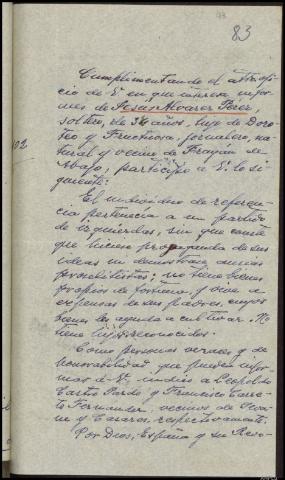 83
Cumplimentando el atto. ofi
cio de S. en que interesa infor
mes de Jesús Alvarez Pérez,
soltero, de 31 años, hijo de Doro
teo y Fructuosa, jornalero, na
tural y vecino de
Abajo, participo a S. lo si
guiente:
102
El individuo de referen
cia pertenecia a un partido
de izquierdas, sin que conste
que hiciese propaganda de sus
ideas ni demostrara animos
no tiene bienes
propios de fortuna, y vive a
expensas de sus padres, cuyos
bienes les ayuda a cultivar. No
tiene hijos reconocidos.
Como personas veraces y de
honorabilidad que pueden infor
mar a S. indico a Leopoldo
Castro Pardo y Francisco
Fernandez, vecinos de
y Casares, respectivamente.
Por Dios, España y su Revo-